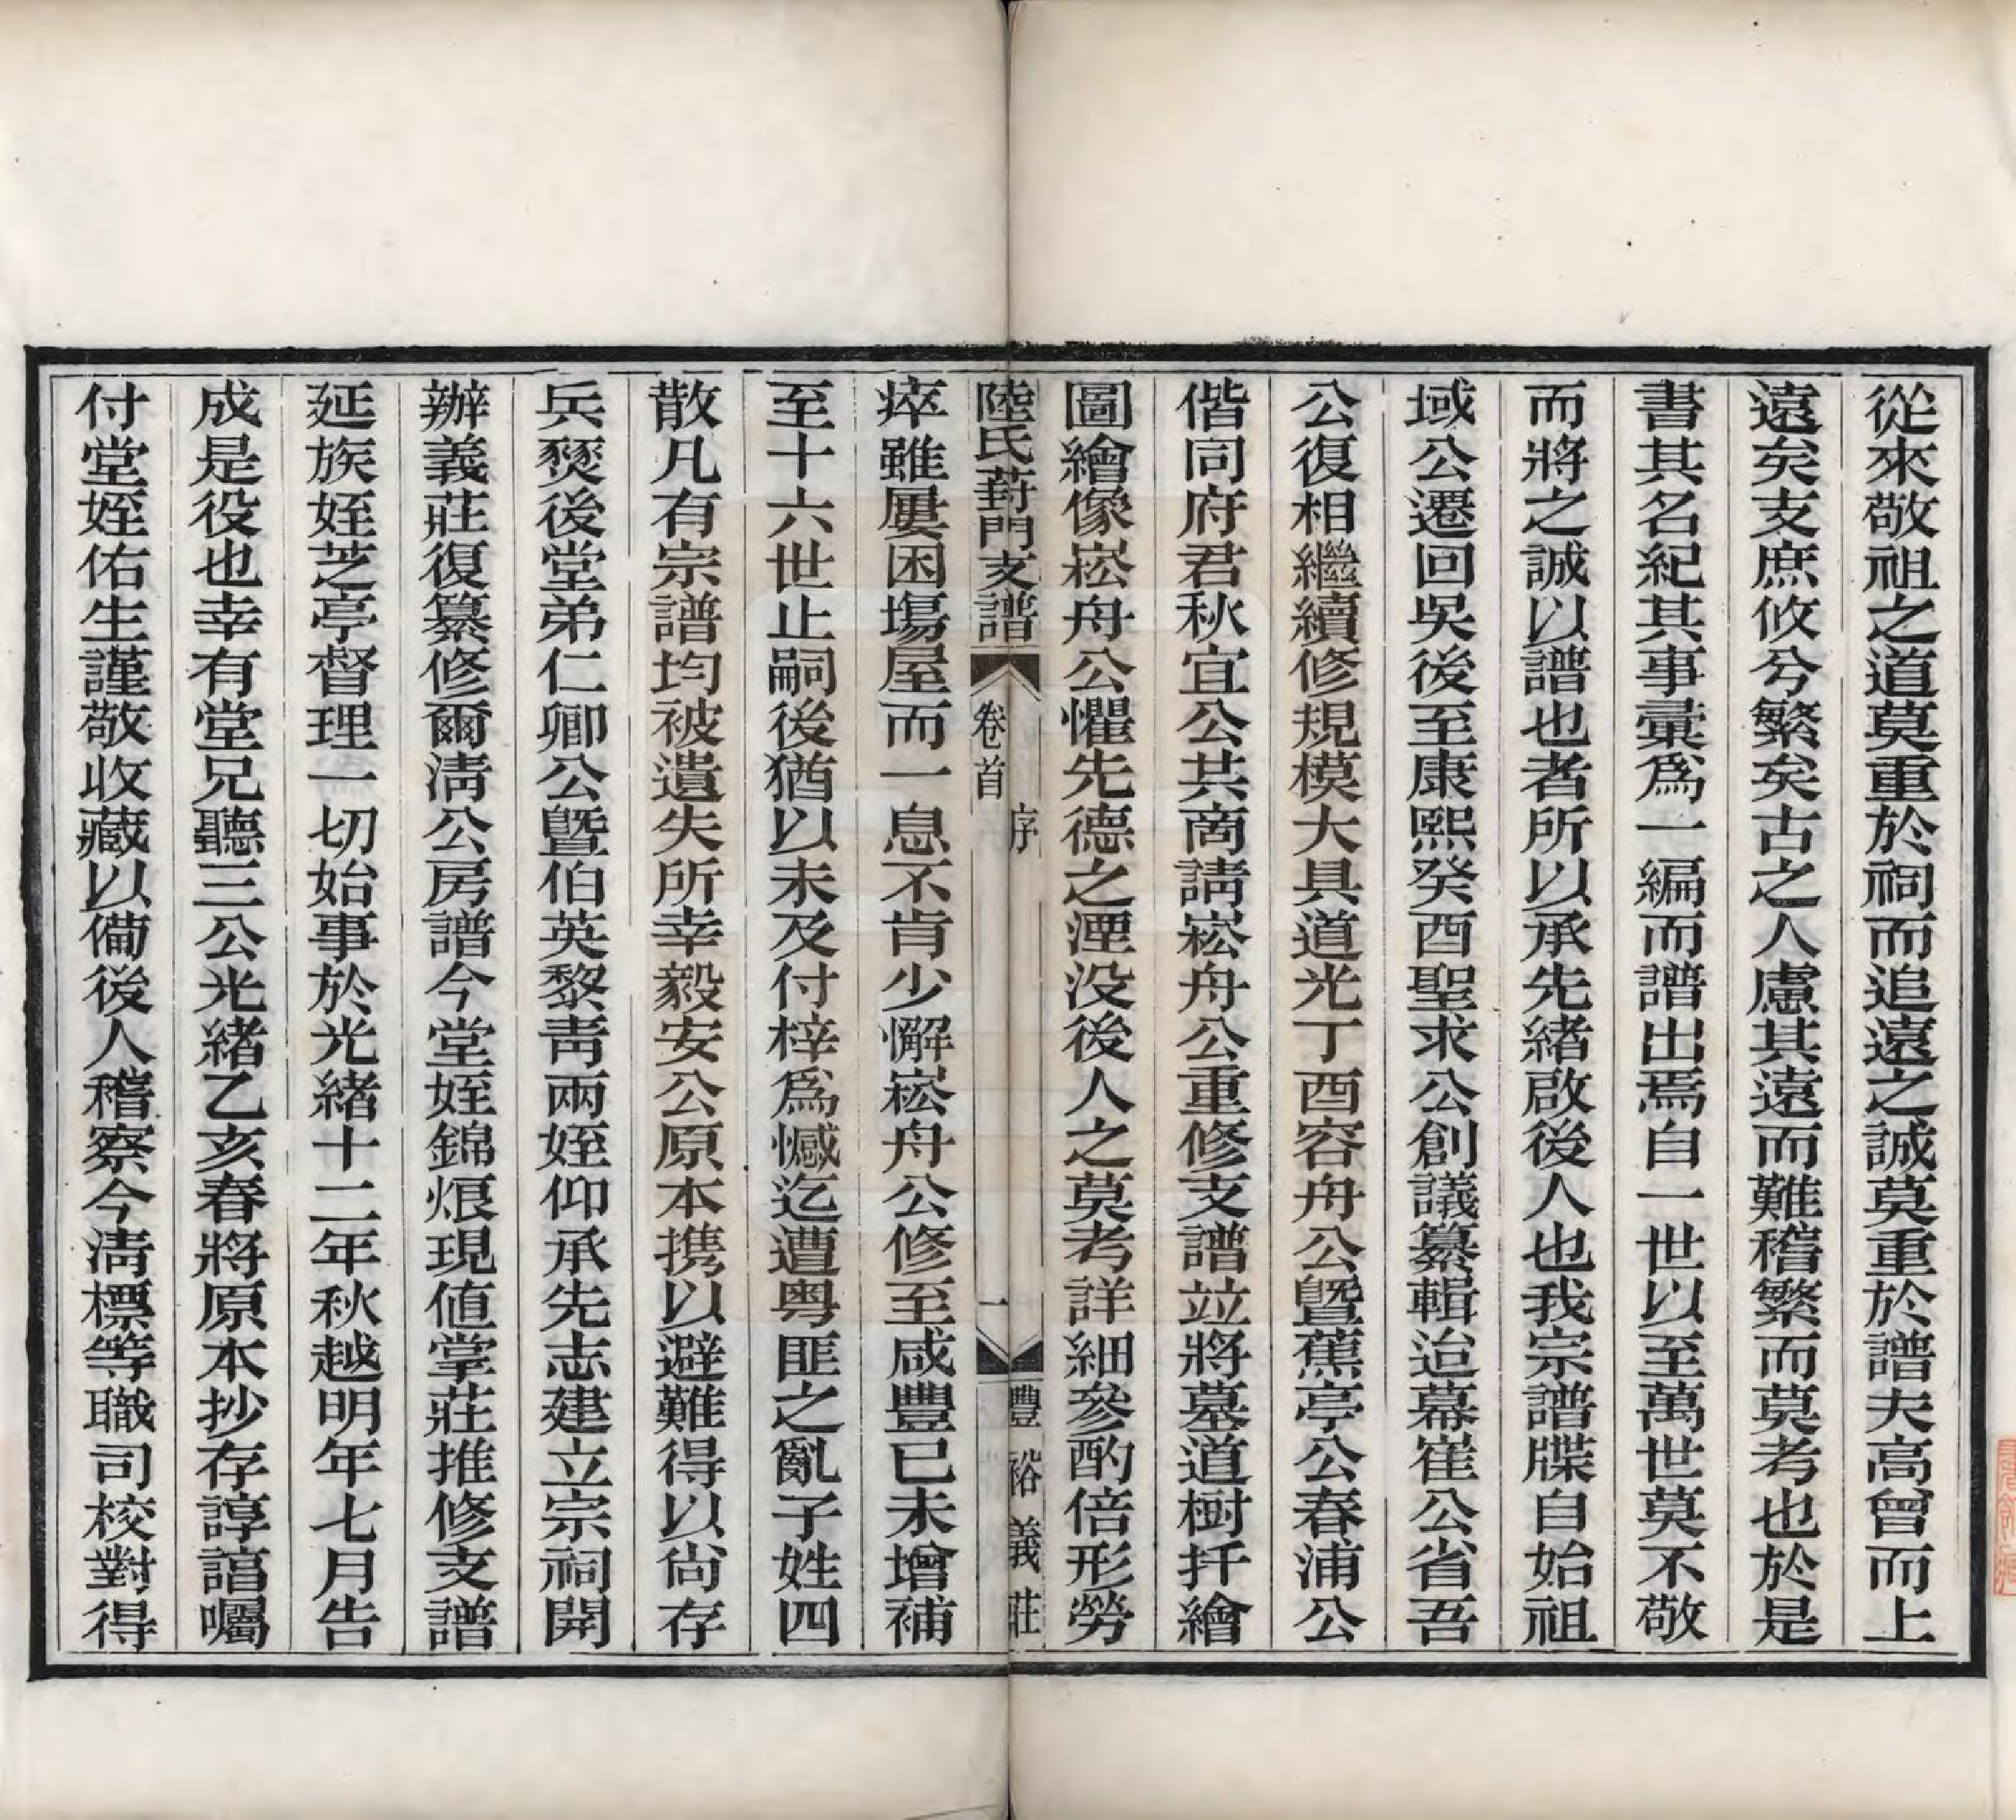 從來敬祖之道莫重於祠而追遠之誠莫重於譜夫高曾而上
遠矣支庶攸兮繁矣古之人慮其遠而難稽繁而莫考也於是
書其名紀其事彙爲一編而譜出焉自一世以至萬世莫不敬
而將之誠以譜也者所以承先緒啟後人也我宗譜牒自始祖
域公遷回吳後至康熙癸酉聖求公創議纂輯迨幕崔公省吾
公復相繼續修規模大具道光丁酉容舟公曁蕉亭公春浦公
偕同府君秋宜公共商請崧舟公重修支譜竝將墓道樹扦繪
圖繪像崧舟公懼先德之湮没後人之莫考詳細參酌倍形勞
陸氏葑門支譜
卷首
序
一
豐裕義莊
瘁雖屢困塲屋而一息不肯少懈崧舟公修至咸豐已未增補
至十六世止嗣後猶以未及付梓爲憾迄遭粤匪之亂子姓四
散凡有宗譜均被遺失所幸毅安公原本携以避難得以尙存
兵燹後堂弟仁卿公曁伯英黎靑兩姪仰承先志建立宗祠開
辦義莊復纂修爾淸公房譜今堂姪錦烺現値掌莊推修支譜
延族姪芝亭督理一切始事於光緒十二年秋越明年七月告
成是役也幸有堂兄聽三公光緒乙亥春將原本抄存諄諄囑
付堂姪佑生謹敬收藏以備後人稽察今淸標等職司校對得